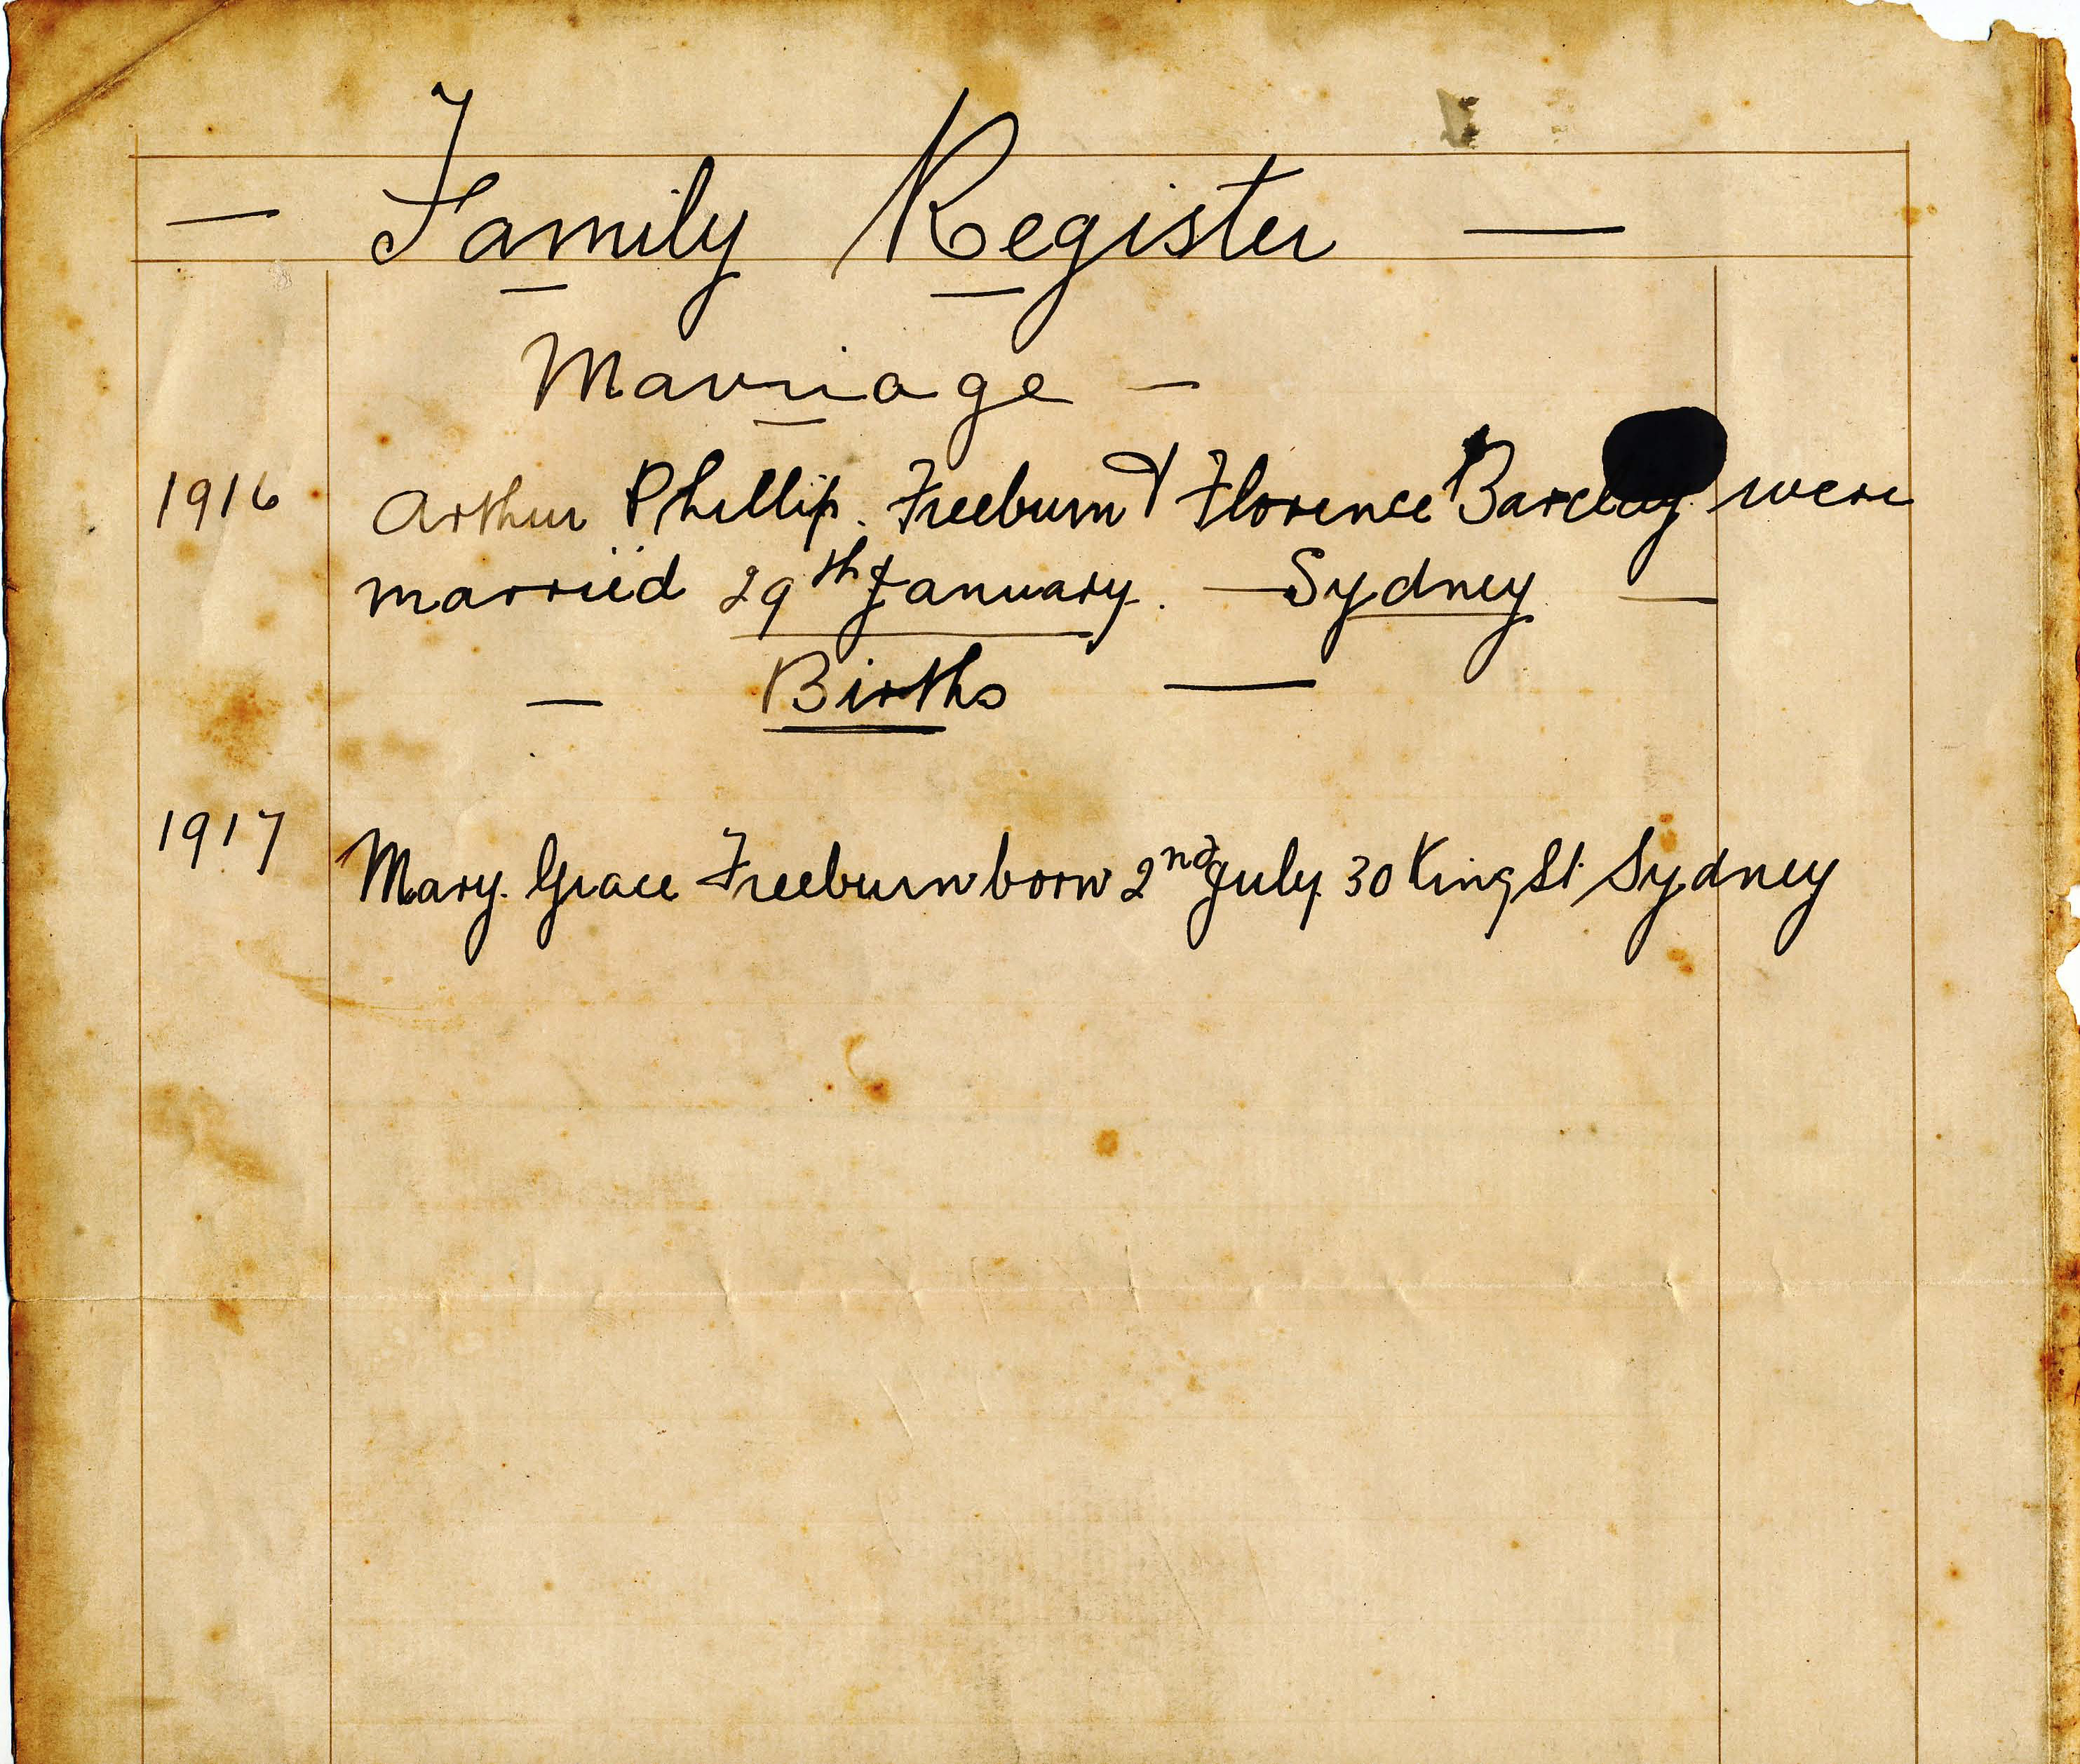 — Family Register —
Marriage —
1916 Arthur Phillip. Freeburn & Florence Barclay were
married 29th January. — Sydney —
— Births —
1917 Mary. Grace Freeburn born 2nd July 30 King St Sydney